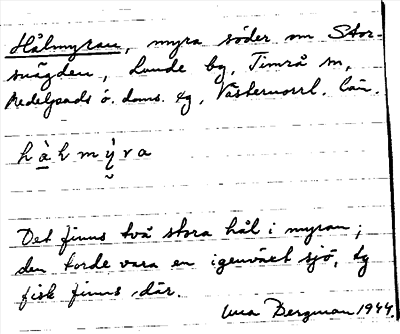 Hålmyran, myra söder om Stor-
svägden, Lunde by, Timrå sn,
Medelpads ö. doms. tg, Västernorrl. län.
hàhmỳra
Det finns två stora hål i myran;
den torde vara en igenväxt sjö, ty
fisk finns där.
Bergman 1944.